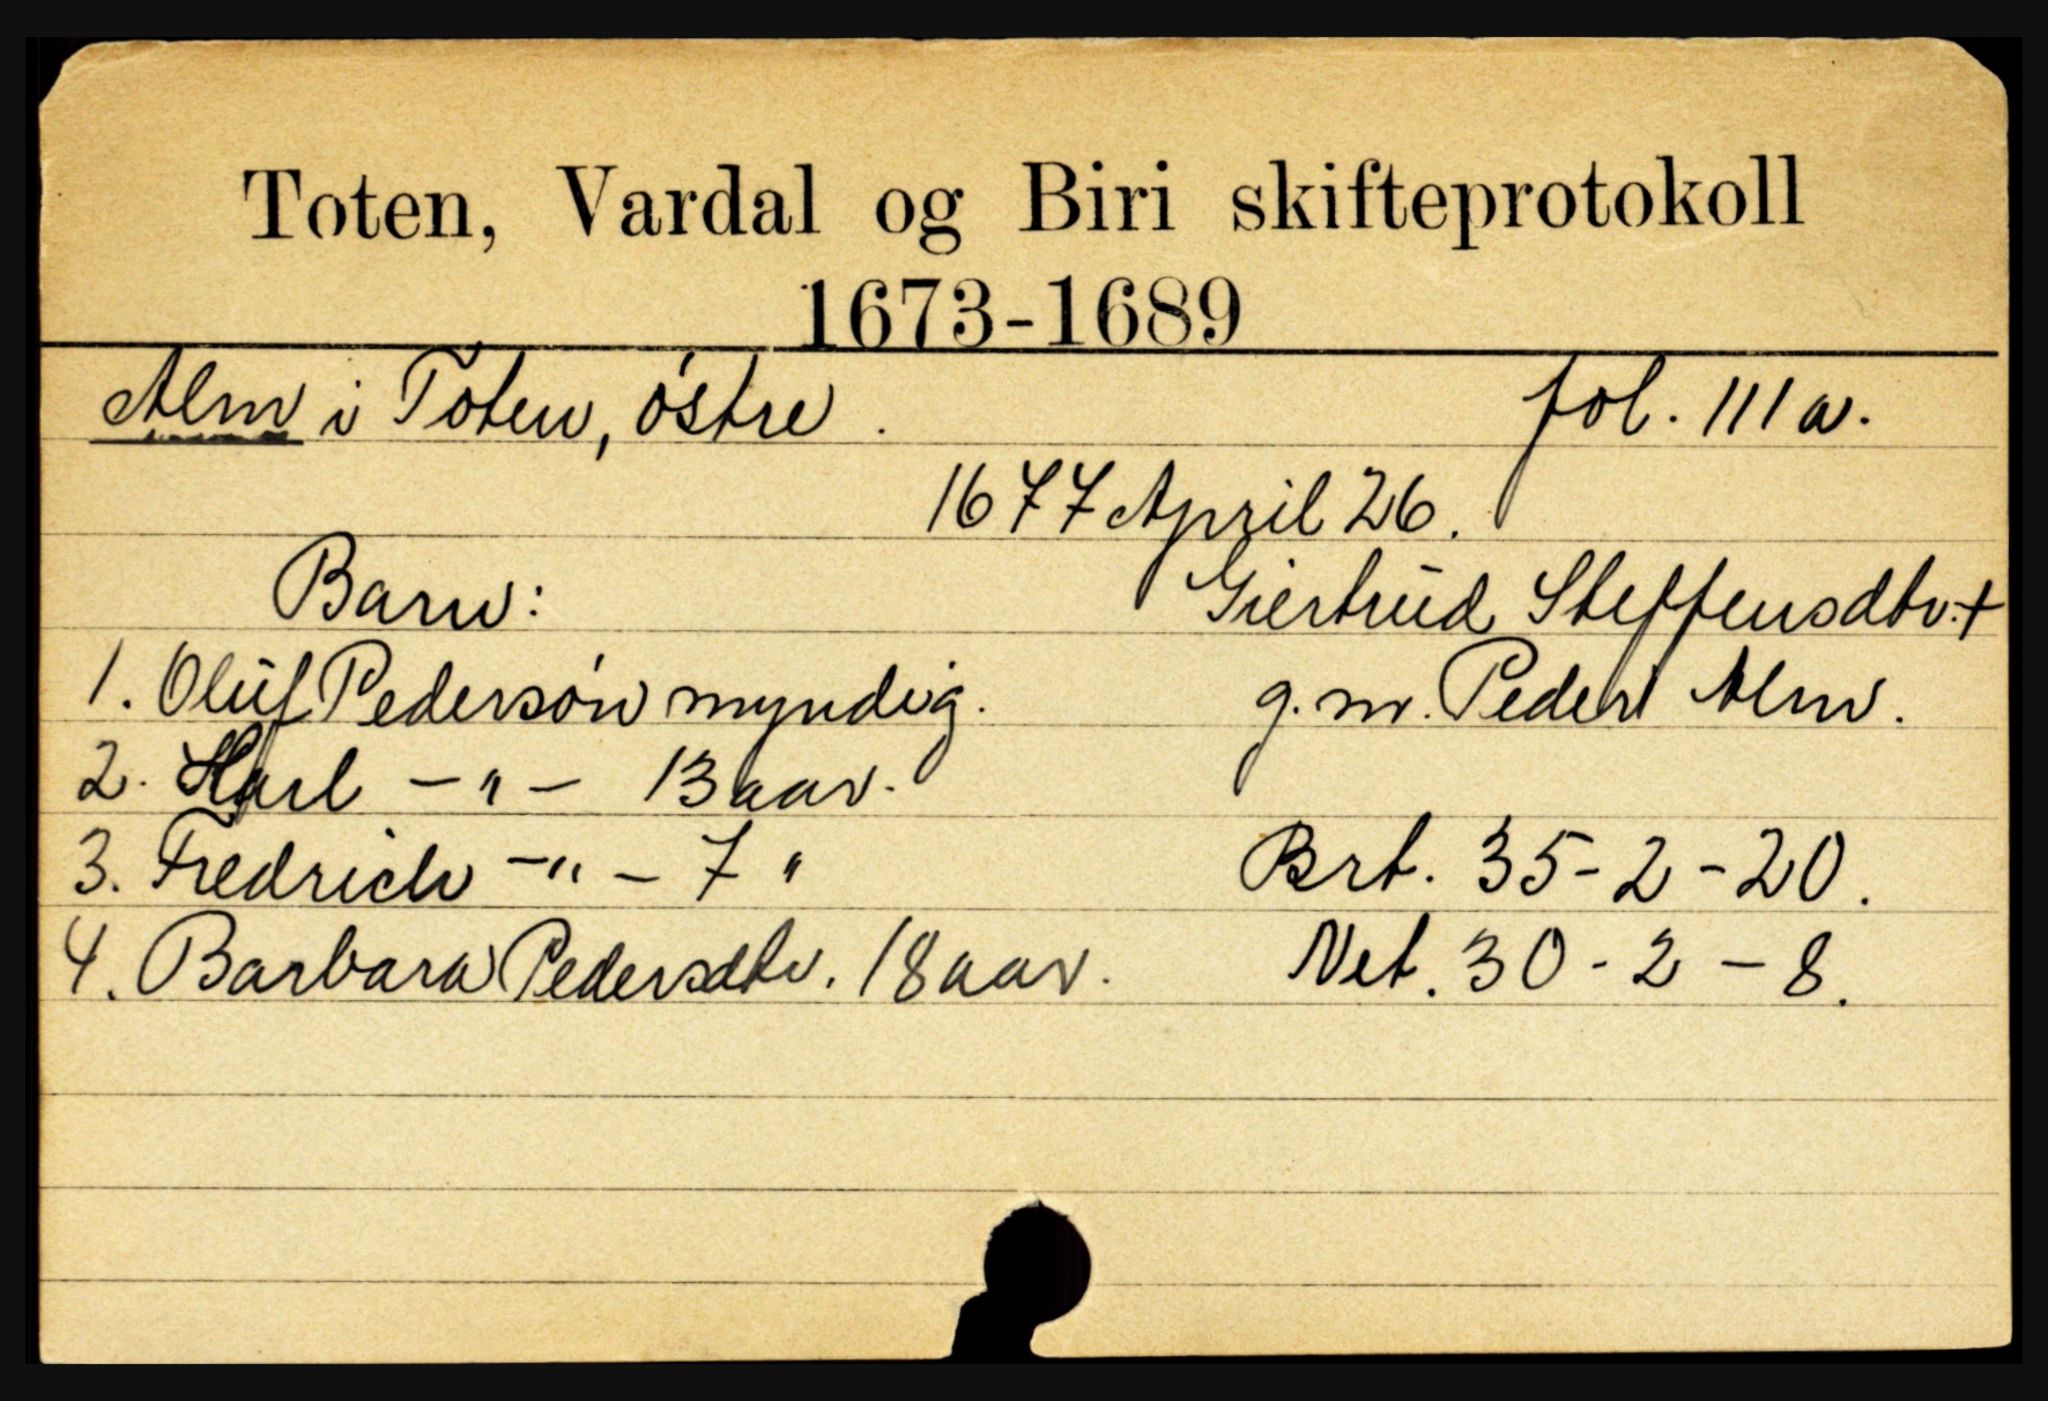 Toten, Vardal og Biri skifteprotokoll
1673-1689
Alm i Toten, østre. fol. 111 a.
1677 April 26.
Barn: Giertrud Steffensdtr. +
1. Oluf Pedersøn myndig. g. m. Peder Alm.
2. Karl - " - 13 aar.
3. Fredrich - " - 7 " Brt. 35-2-20.
4. Barbara Pedersdtr. 18 aar. Net. 30-2-8.